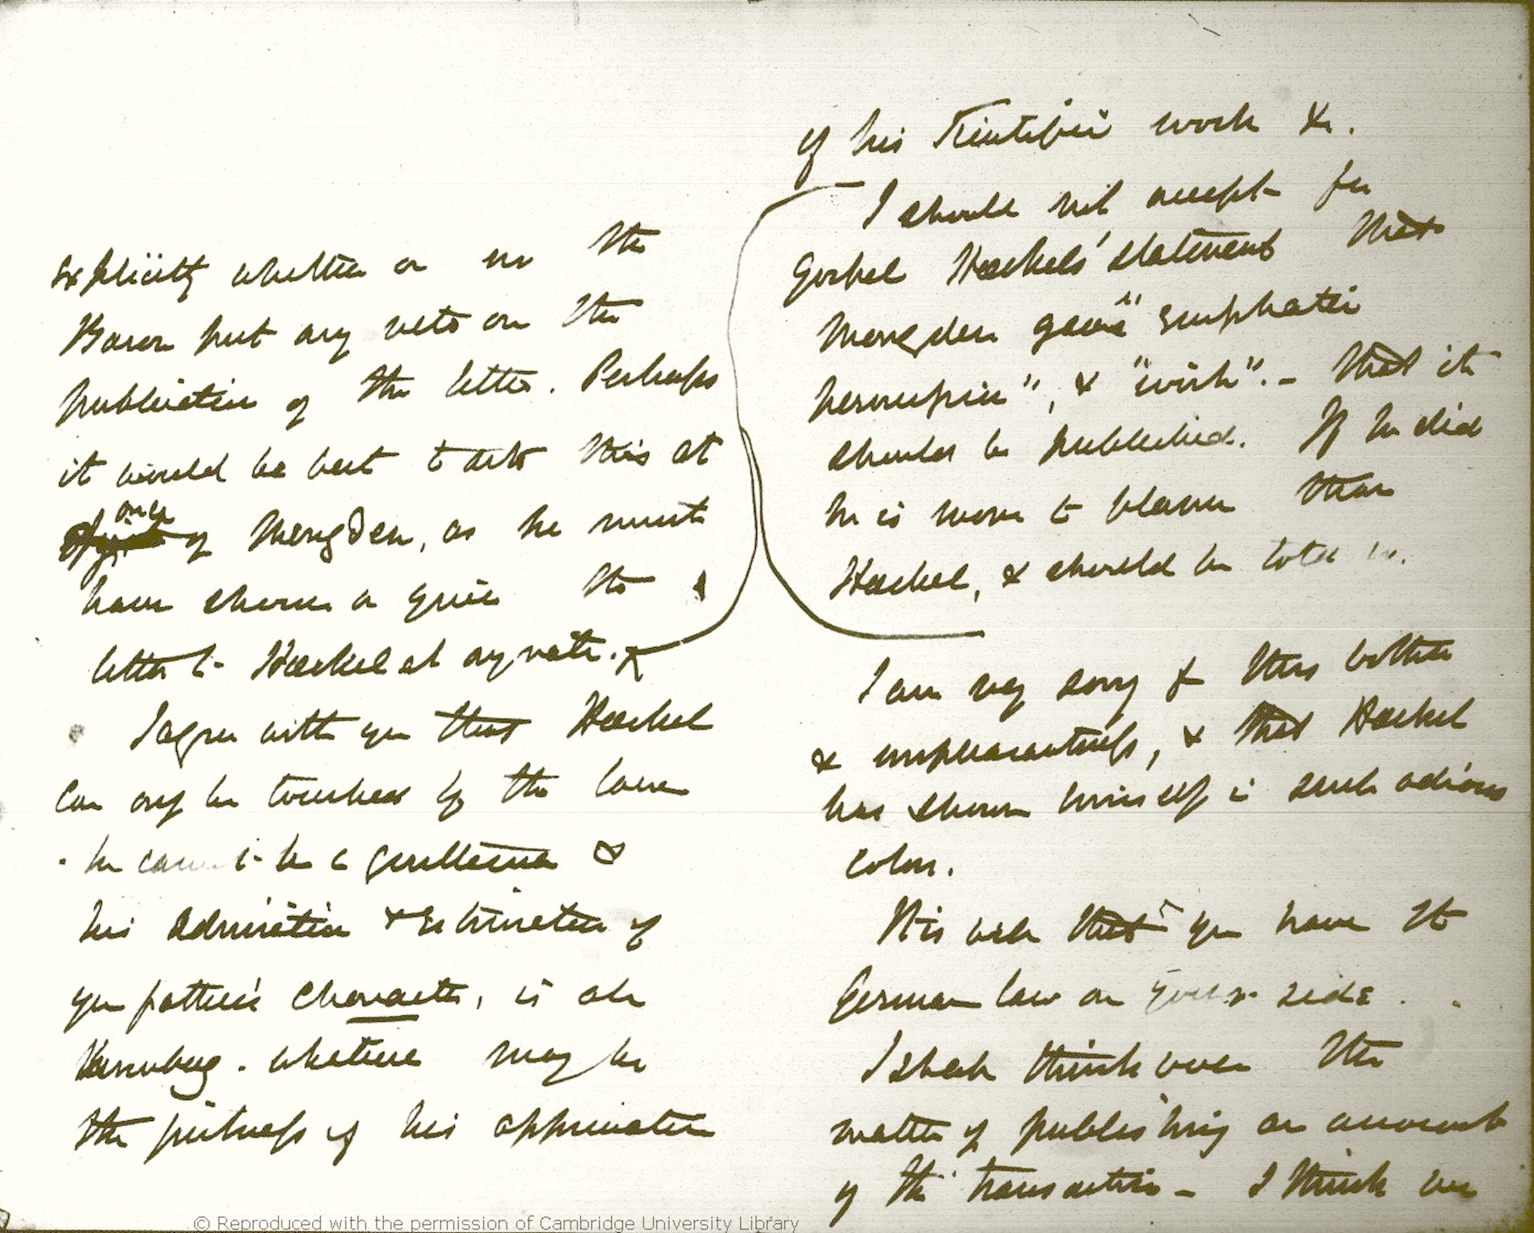 explicitly whether or no the
Baron put any veto on the
publication of the letter. Perhaps
it would be best to ask this at
once of Mengden, as he must
have shown or given the
letter to Haeckel at any rate.
I agree with you that Haeckel
can only be touched by the law
he cannot be a gentleman &
his admiration & estimation of
your father's character, is all
Humbug. whatever may be
the justness of his appreciation
of his scientific work &c.
I should not accept for
Gospel Haeckels' statement that
Mengden gave "emphatic
permission", & "wish". – that it
should be published. If he did
he is more to blame than
Haeckel, & should be told so.
I am very sorry for this bother
& unpleasantness, & that Haeckel
has shown himself in such odious
colors.
It is well that you have the
German law on your side.
I shall think over the
matter of publishing an account
of the transaction – I think we
© Reproduced with the permission of Cambridge University Library